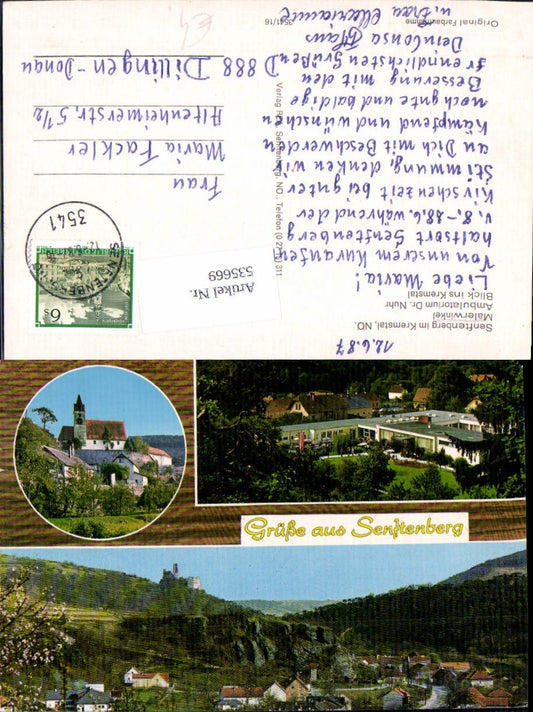 Senftenberg im Kremstal, NÖ.
Malerwinkel
Ambulatorium Dr. Nuhr
Blick ins Kremstal
12.6.87
Liebe Maria!
Von unserem Kuraufent
haltsort Senftenberg
v. 8.-28.6. während der
Kirschenzeit bei guter
Stimmung, denken wir
an Dich mit Beschwerden
kämpfend und wünschen
noch gute und baldige
Besserung mit den
freundlichsten Grüßen
Dein Klaus
u. Frau
Verlag Senftenberg, NÖ., Telefon
Original Farbaufnahme
3541/16
SENFTENBERG
3541
S 6
Artikel Nr.
535669
Frau
Maria Fackler
Altenheimerstr. 5 1/2
D 888 Dillingen-Donau
43
Grüße aus Senftenberg